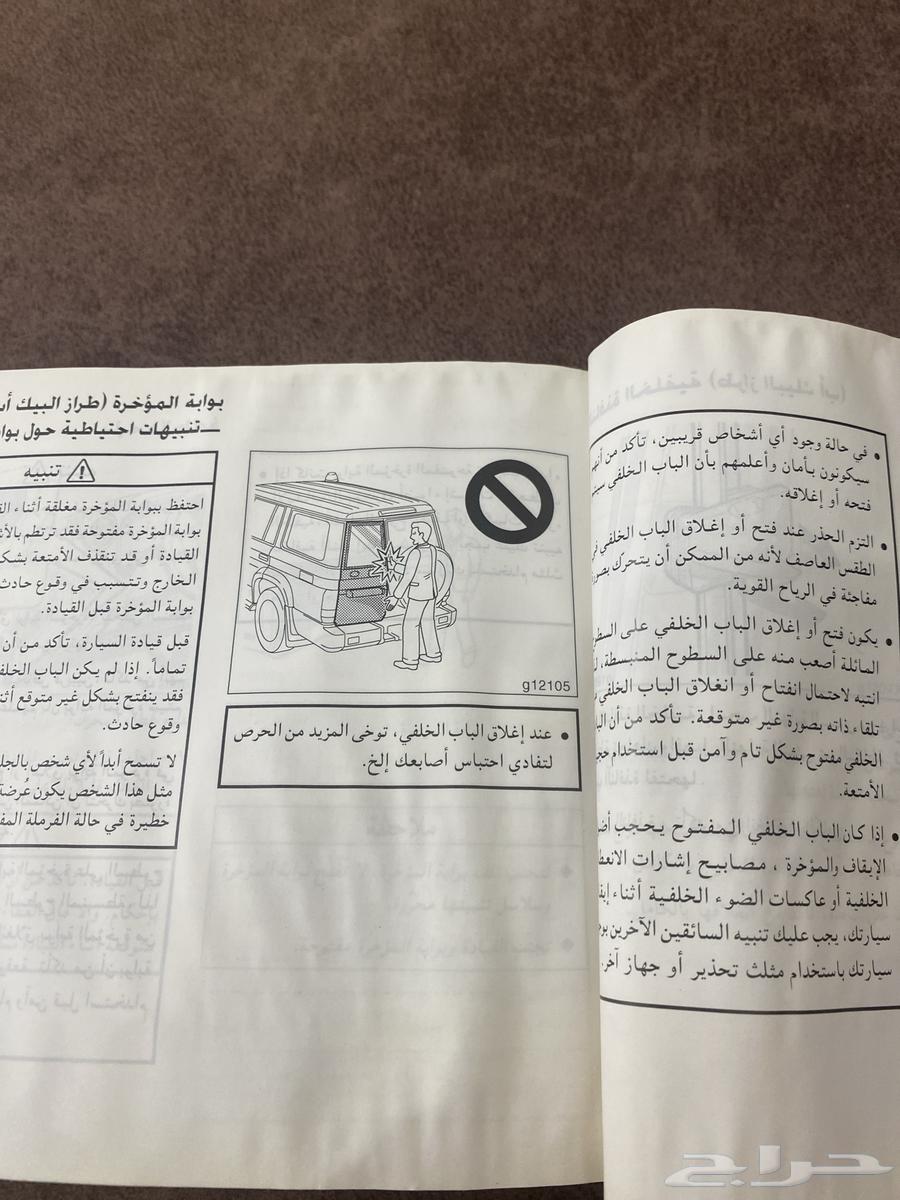 في حالة وجود أي أشخاص قريبين، تأكد من
سيكونون بأمان وأعلمهم بأن الباب الخلفي
فتحه أو إغلاقه.
التزم الحذر عند فتح أو إغلاق الباب الخلفي
الطقس العاصف لأنه من الممكن أن يتحرك
مفاجئة في الرياح القوية.
يكون فتح أو إغلاق الباب الخلفي على
المائلة أصعب منه على السطوح المنبسطة،
انتبه لاحتمال انفتاح أو انغلاق الباب الخلفي
تلقاء ذاته بصورة غير متوقعة. تأكد من أن
الخلفي مفتوح بشكل تام وآمن قبل استخدام
الأمتعة.
إذا كان الباب الخلفي المفتوح يحجب
الإيقاف والمؤخرة ، مصابيح إشارات
الخلفية أو عاكسات الضوء الخلفية أثناء
سيارتك، يجب عليك تنبيه السائقين الآخرين
سيارتك باستخدام مثلث تحذير أو جهاز آخر.
g12105
عند إغلاق الباب الخلفي، توخى المزيد من الحرص
لتفادي احتباس أصابعك إلخ.
بوابة المؤخرة (طراز البيك
—تنبيهات احتياطية حول
تنبيه
احتفظ ببوابة المؤخرة مغلقة أثناء
بوابة المؤخرة مفتوحة فقد ترتطم
القيادة أو قد تنقذف الأمتعة
الخارج وتتسبب في وقوع حادث
بوابة المؤخرة قبل القيادة.
قبل قيادة السيارة، تأكد من أن
تماماً. إذا لم يكن الباب
فقد ينفتح بشكل غير متوقع
وقوع حادث.
لا تسمح أبداً لأي شخص
مثل هذا الشخص يكون عُرضة
خطيرة في حالة الفرملة
حراج